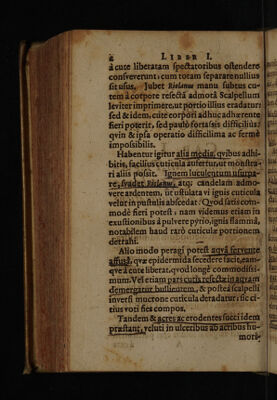 2 LIBER I.
à cute liberatam spectatoribus ostendere
consveverunt: cum totam separare nullius
sit usus. Jubet Riolanus manu subtus cu-
tem à corpore resectâ admotâ Scalpellum
leviter imprimere, ut portio illius eradatur:
sed & idem, cute corpori adhuc adhærente
fieri poterit, sed paulò fortassis difficilius:
qvin & ipsa operatio difficilima ac fermè
impossibilis.
Habentur igitur alia media, qvibus adhi-
bitis, facilius cuticula aufertur, ut monstra-
ri aliis possit. Ignem luculentum usurpa-
re, svadet Riolanus, atq; candelam admo-
vere ardentem, ut ustulata vi ignis cuticula
velut in pustulis abscedat: Qvod satis com-
modè fieri potest: nam videmus etiam in
exustionibus à pulvere pyrio, ignis flammâ,
notabilem haud rarò cuticulæ portionem
detrahi.
Alio modo peragi potest aqvâ fervente
affusâ, qvæ epidermida secedere facit, eam-
qve à cute liberat, qvod longè commodissi-
mum. Vel etiam pars cutis resecta in aqvam
demergatur bullientem, & postea scalpelli
inversi mucrone cuticula deradatur: sic ci-
tius voti fies compos.
Tandem & acres ac erodentes succi idem
præstant, veluti in ulceribus ab acribus hu-
mori-